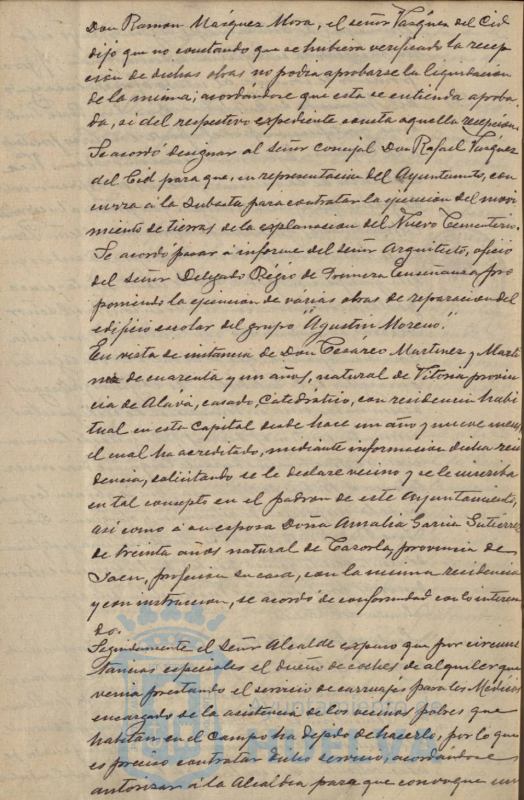 Don Ramon Márquez Mora, el señor Vázquez del Cid
dijo que no constando que se hubiera verificado la recep
ción de dichas obras no podia aprobarse la liquidacion
de la misma; acordándose que esta se entienda aproba
da, si del respectivo expediente consta aquella recepcion.
Se acordó designar al señor concejal Don Rafael Vázquez
del Cid para que, en representacion del Ayuntamto, con
curra á la Subasta para contratar la ejecucion del movi
miento de tierras de la explanacion del Nuevo Cementerio.
Se acordó pasar á informe del señor Arquitecto, oficio
del señor Delegado Régio de Primera Enseñanza pro
poniendo la ejecucion de várias obras de reparacion del
edificio escolar del grupo "Agustin Moreno".
En vista de instancia de Don Cesáreo Martinez y Marti
nez de cuarenta y un años, natural de Vitoria provin
cia de Alava, casado, Catedrático, con residencia habi
tual en esta Capital desde hace un año y nueve meses,
el cual ha acreditado, mediante informacion dicha resi
dencia, solicitando se le declare vecino y se le inscriba
en tal concepto en el padron de este Ayuntamiento,
asi como á su esposa Doña Amalia Garcia Gutierrez
de treinta años natural de Cazorla, provincia de
Jaen, profesion su casa, con la misma residencia
y con instruccion, se acordó de conformidad con lo interesa
do.
Seguidamente el Señor Alcalde expuso que por circuns
tancias especiales el dueño de coches de alquiler que
venia prestando el servicio de carruajes para los Médicos
encargados de la asistencia de los vecinos pobres que
habitan en el campo ha dejado de hacerlo, por lo que
es preciso contratar dicho servicio, acordándose
autorizar á la Alcaldia para que convoque un
AYUNTAMIENTO DE
HUELVA